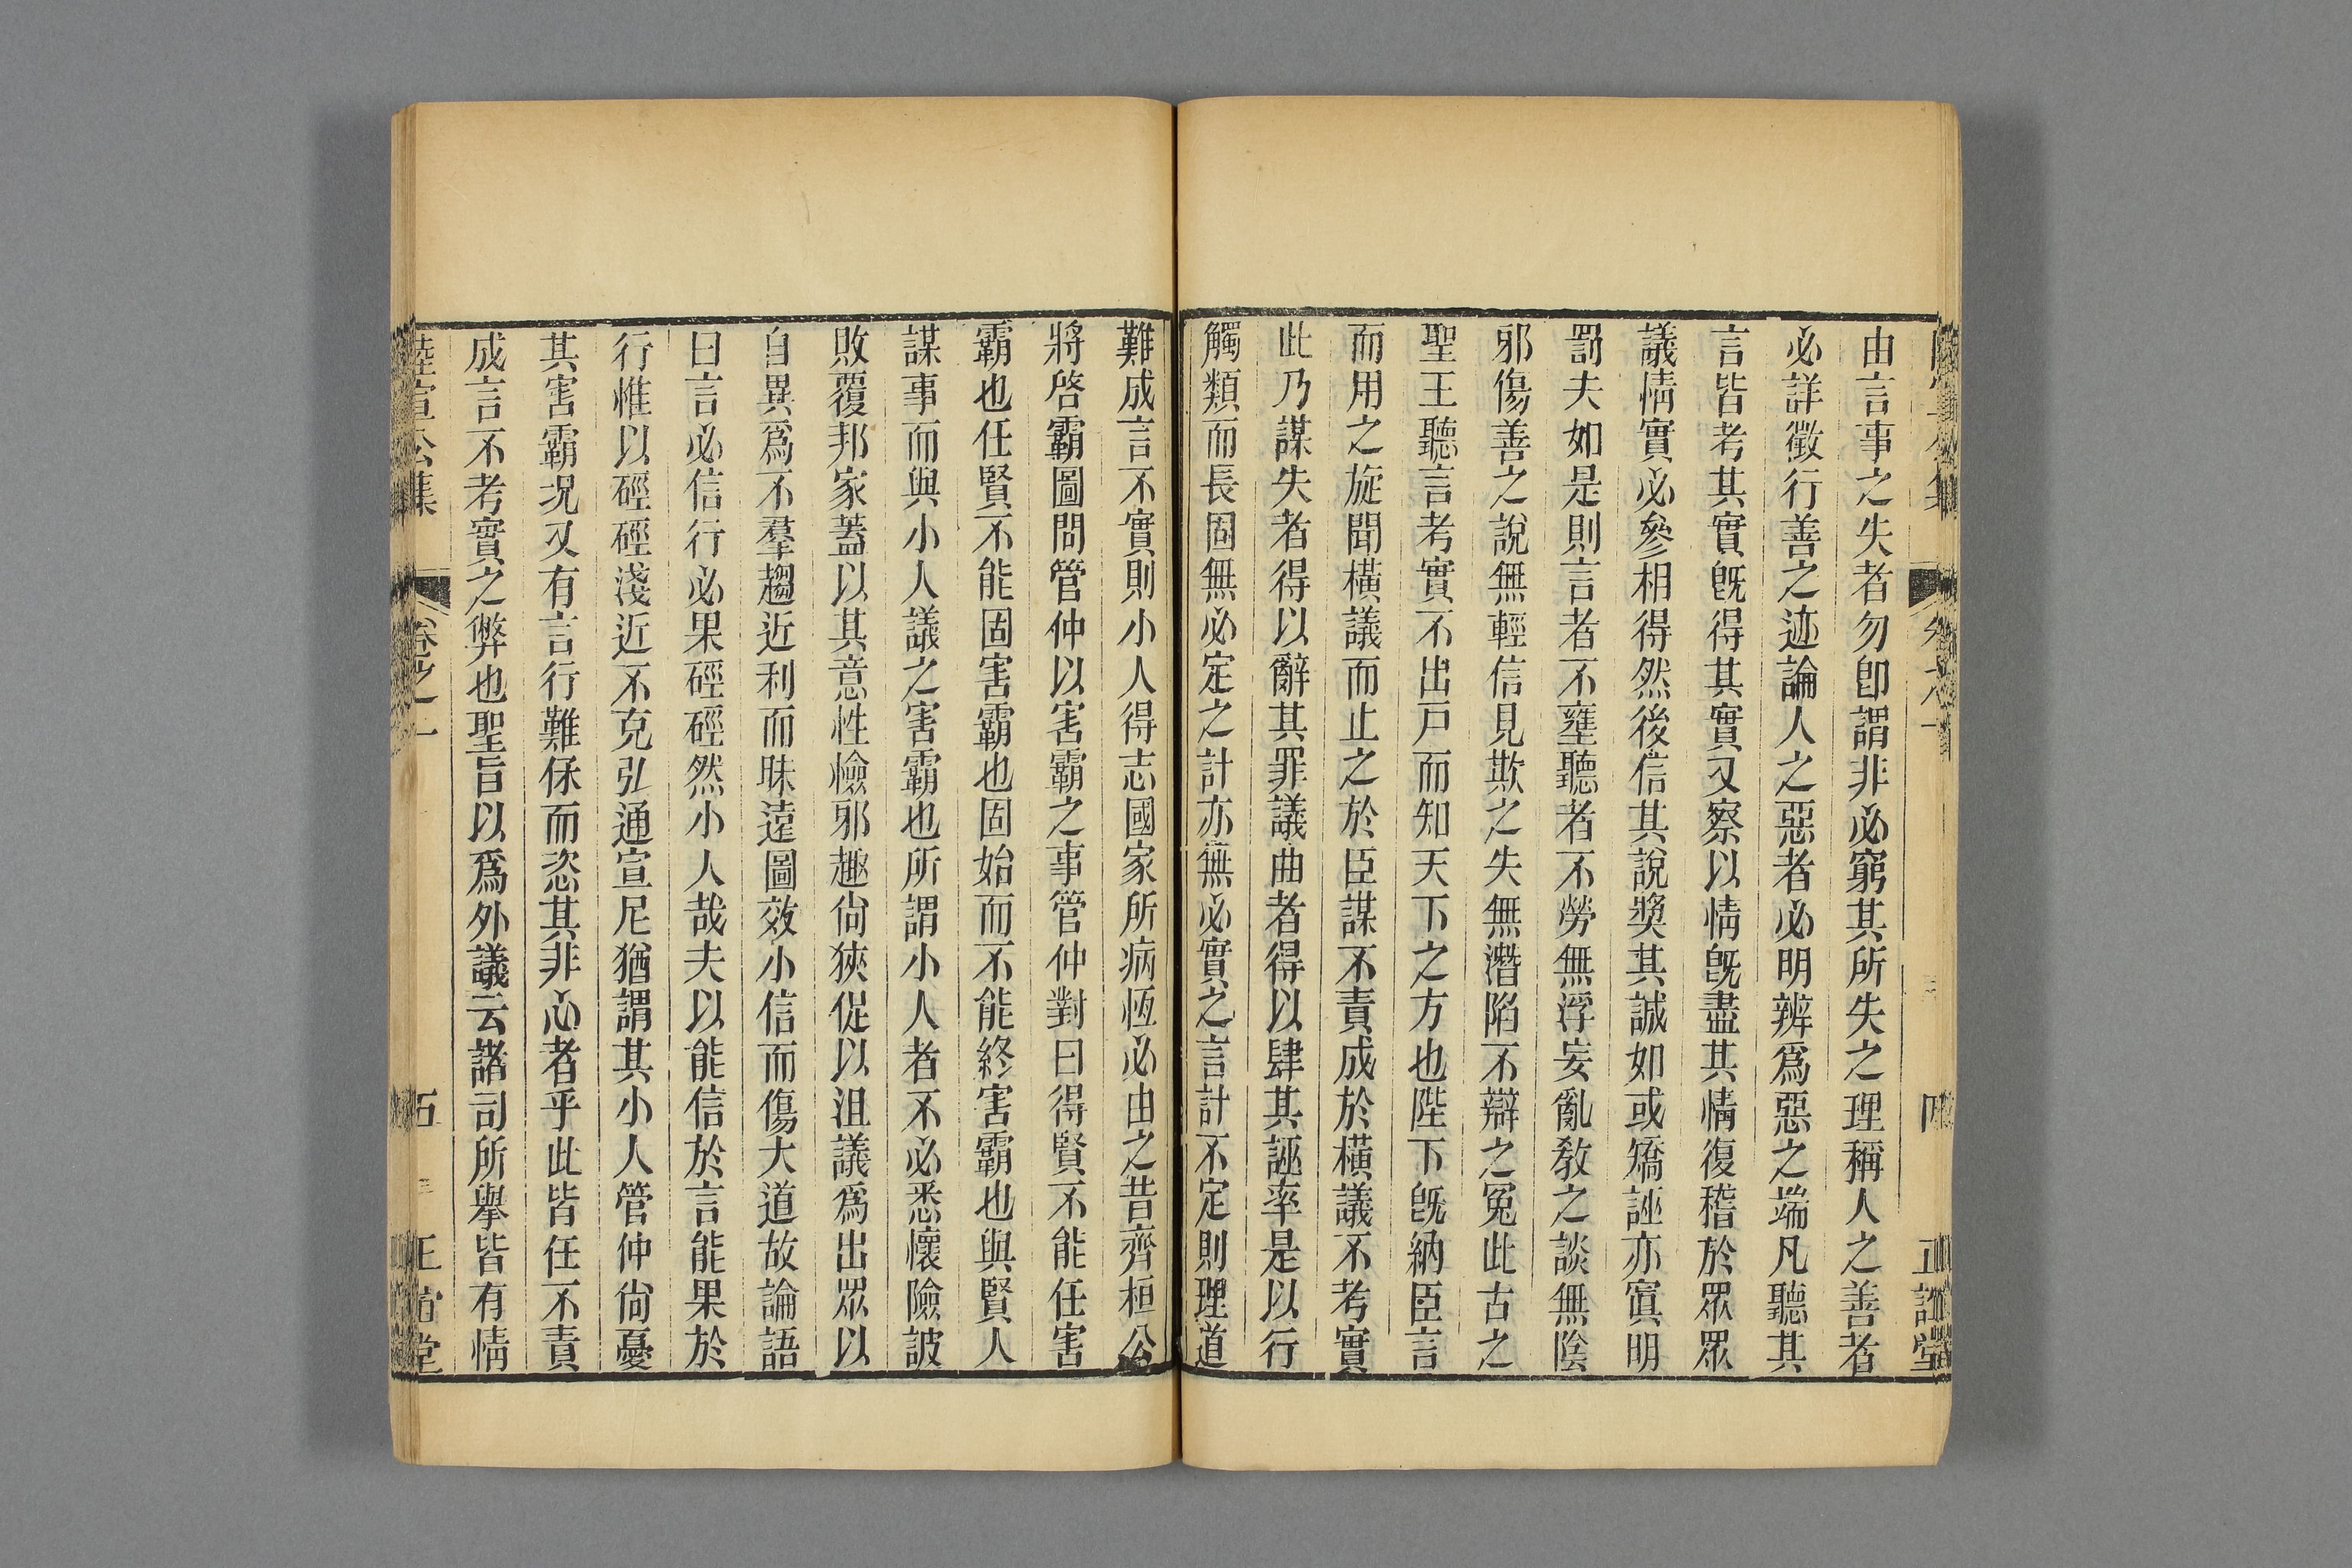 由言事之失者勿卽謂非必窮其所失之理稱人之善者
必詳徵行善之迹論人之惡者必明辨爲惡之端凡聽其
言皆考其實旣得其實又察以情旣盡其情復稽於眾眾
議情實必參相得然後信其說獎其誠如或矯誣亦寘明
罰夫如是則言者不壅聽者不勞無浮妄亂敎之談無陰
邪傷善之說無輕信見欺之失無潛陷不辯之冤此古之
聖王聽言考實不出戸而知天下之方也陛下旣納臣言
而用之旋聞橫議而止之於臣謀不責成於橫議不考實
此乃謀失者得以辭其罪議曲者得以肆其誣率是以行
觸類而長固無必定之計亦無必實之言計不定則理道
難成言不實則小人得志國家所病恆必由之昔齊桓公
將啓霸圖問管仲以害霸之事管仲對曰得賢不能任害
霸也任賢不能固害霸也固始而不能終害霸也與賢人
謀事而與小人議之害霸也所謂小人者不必悉懷險詖
敗覆邦家蓋以其意性憸邪趣尙狹促以沮議爲出眾以
自異爲不羣趨近利而昧遠圖效小信而傷大道故論語
曰言必信行必果硜硜然小人哉夫以能信於言能果於
行惟以硜硜淺近不克弘通宣尼猶謂其小人管仲尙憂
其害霸况又有言行難保而恣其非心者乎此皆任不責
成言不考實之弊也聖旨以爲外議云諸司所舉皆有情
陸宣公集 卷之十 五 正誼堂